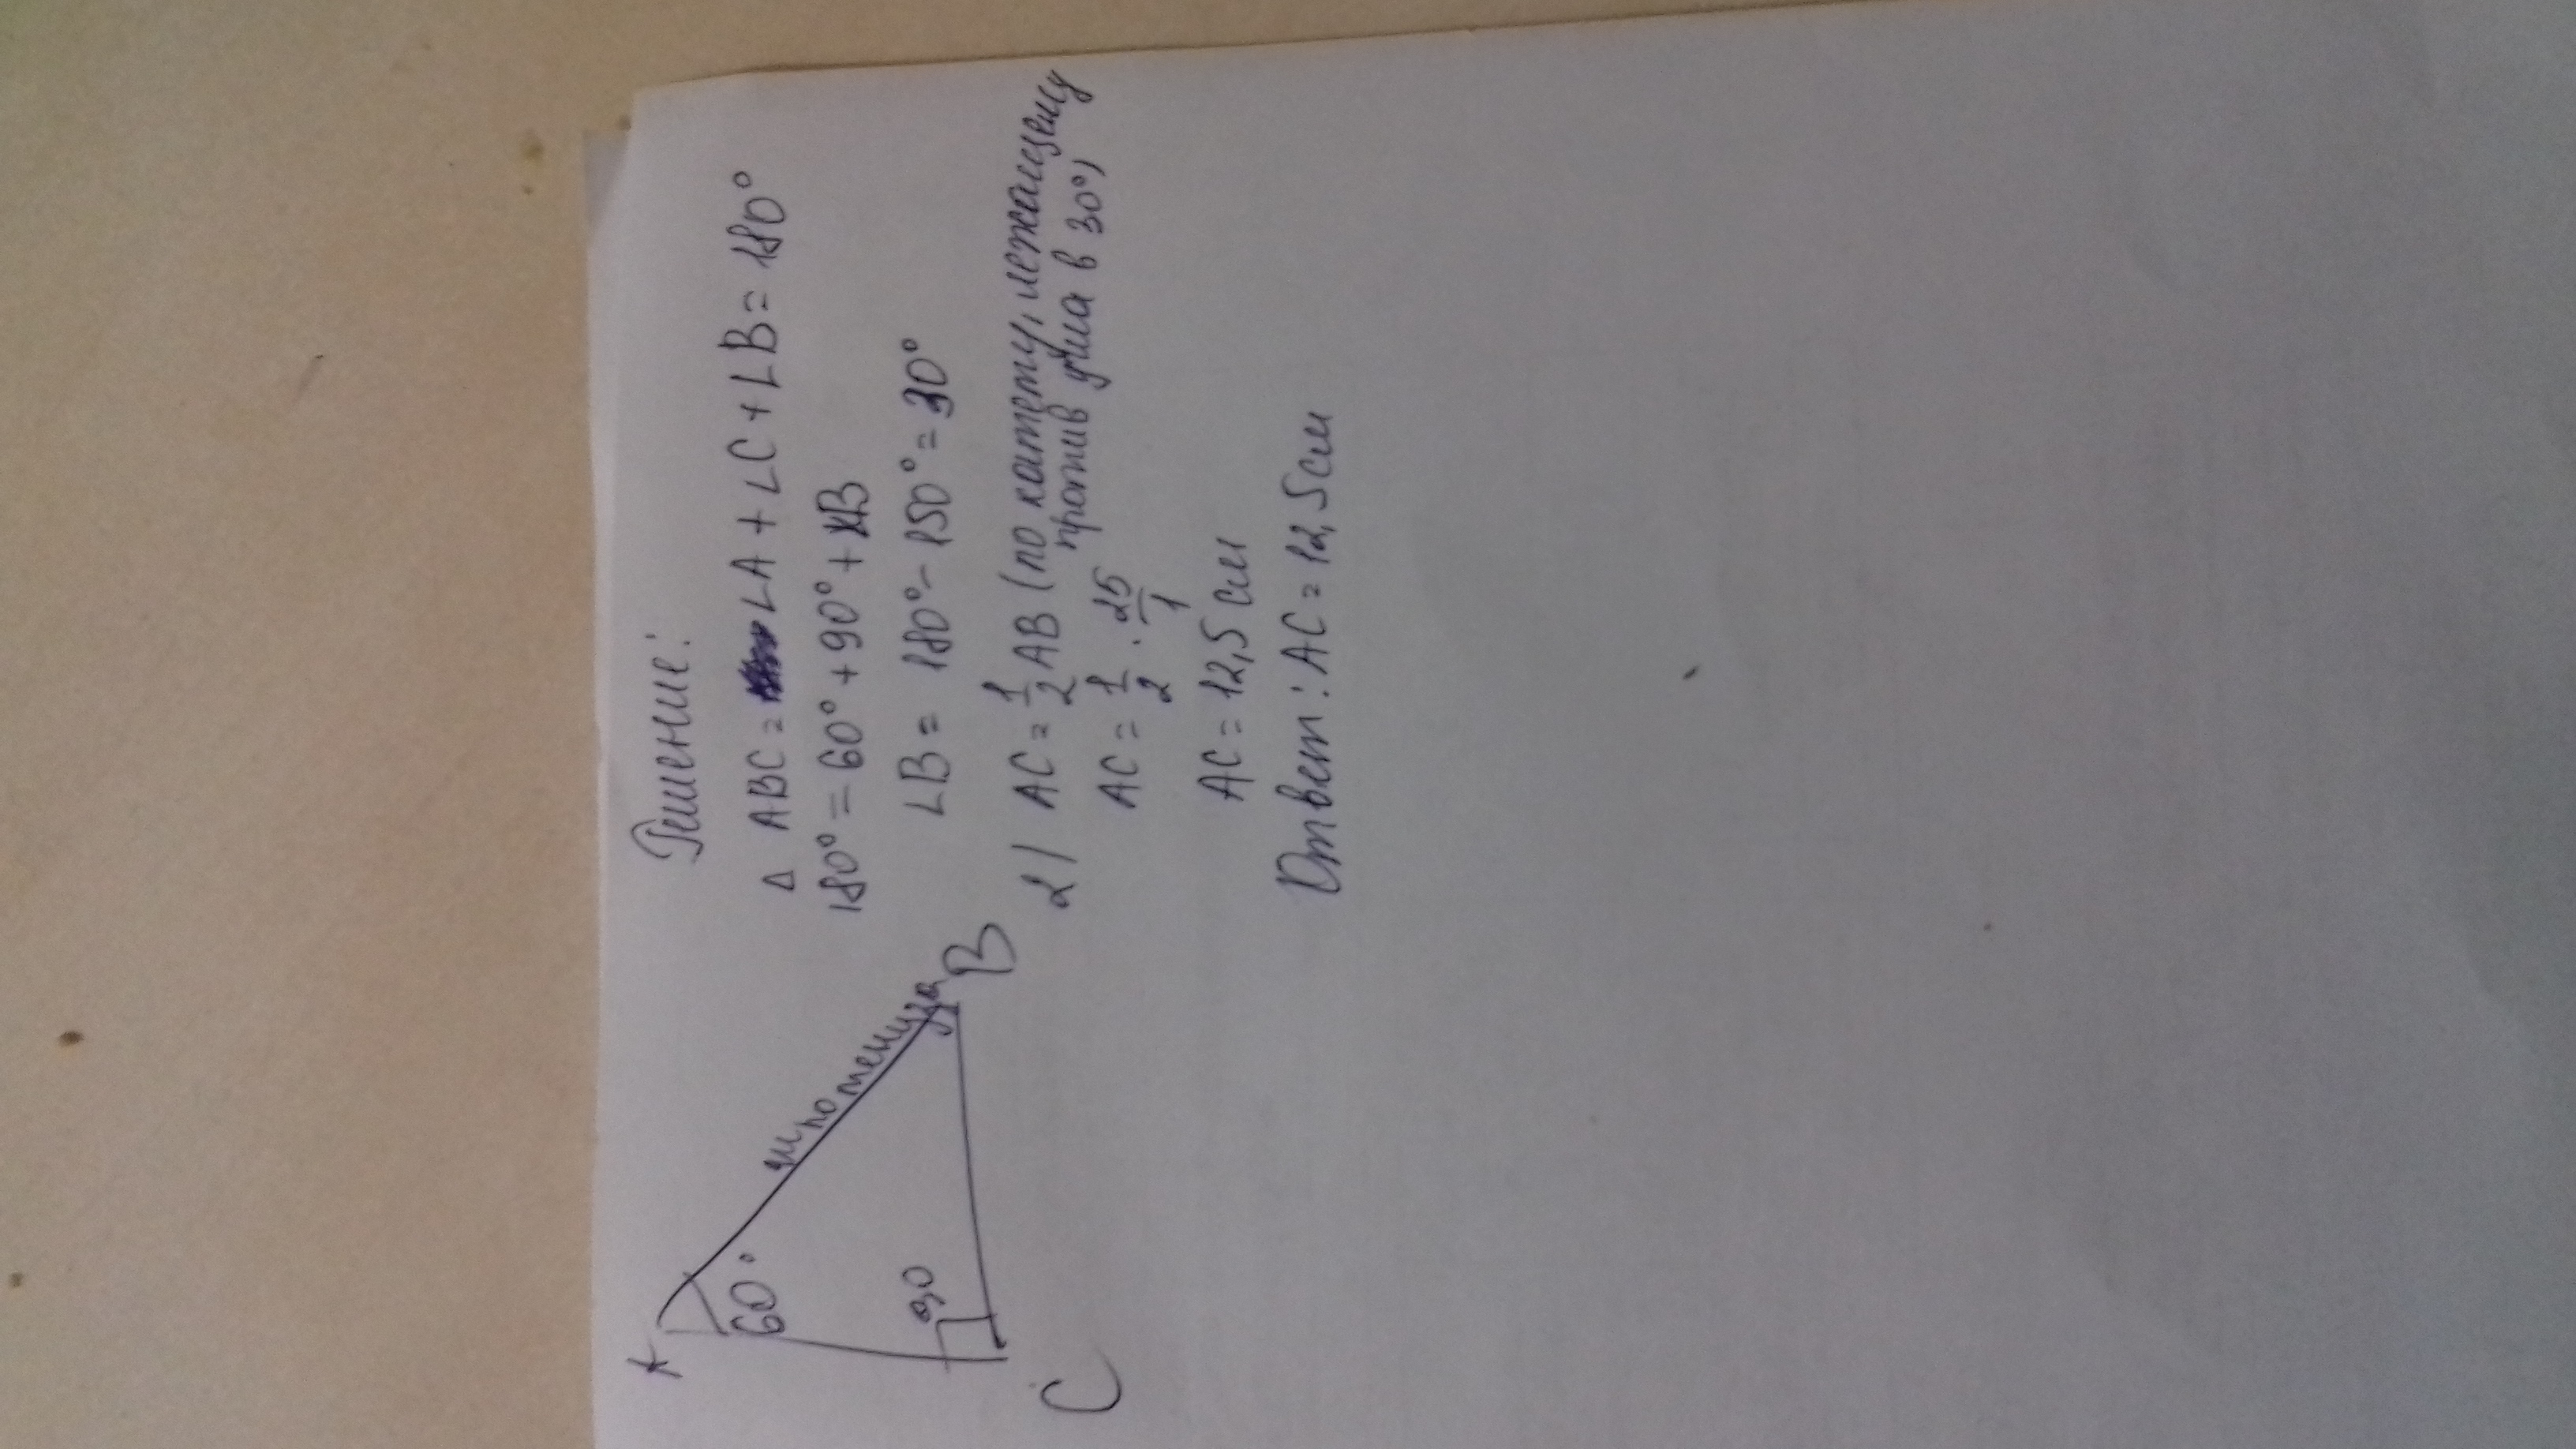 Решение:
Δ ABC = ∠A + ∠C + ∠B = 180°
180° = 60° + 90° + ∠B
∠B = 180° - 150° = 30°
2) AC = 1/2 AB (по катету, лежащему
против угла в 30°)
AC = 1/2 · 25/1
AC = 12,5 см
Ответ: AC = 12,5 см
A
60°
гипотенуза
B
90
C